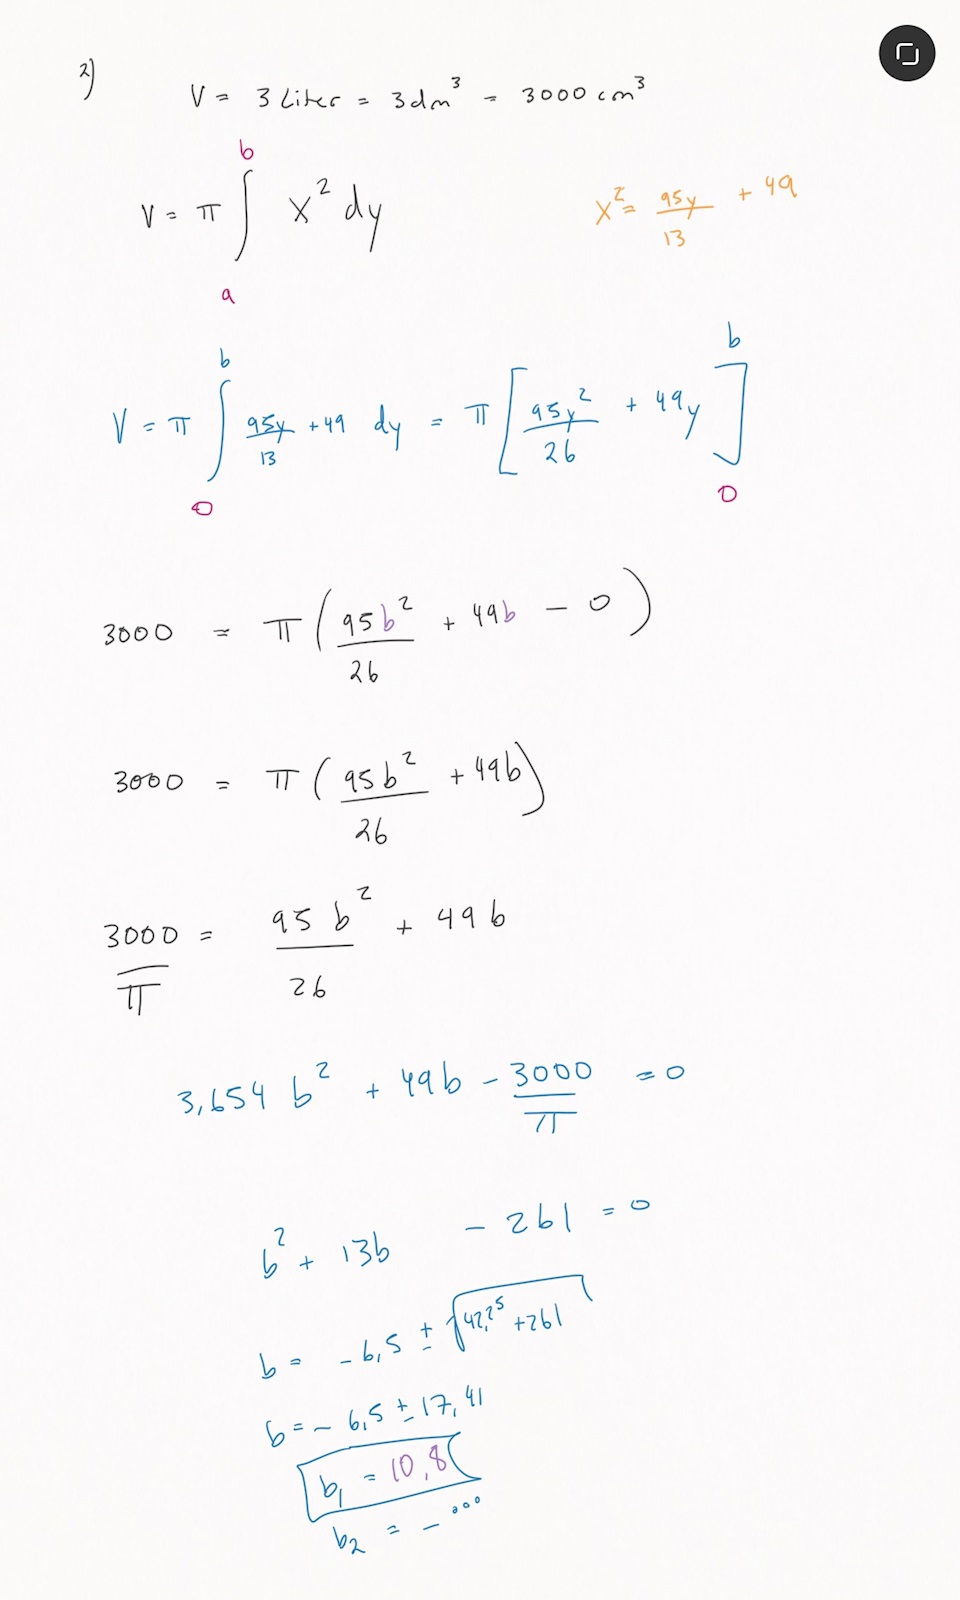 2)
V = 3 Liter = 3dm³ = 3000 cm³
V = π ∫ₐᵇ x² dy
x² = 95y/13 + 49
V = π ∫₀ᵇ 95y/13 + 49 dy = π [95y²/26 + 49y]₀ᵇ
3000 = π (95b²/26 + 49b - 0)
3000 = π (95b²/26 + 49b)
3000/π = 95b²/26 + 49b
3,654 b² + 49b - 3000/π = 0
b² + 13b - 261 = 0
b = - 6,5 ± √42,25 + 261
b = - 6,5 ± 17,41
b₁ = 10,8
b₂ = - ...